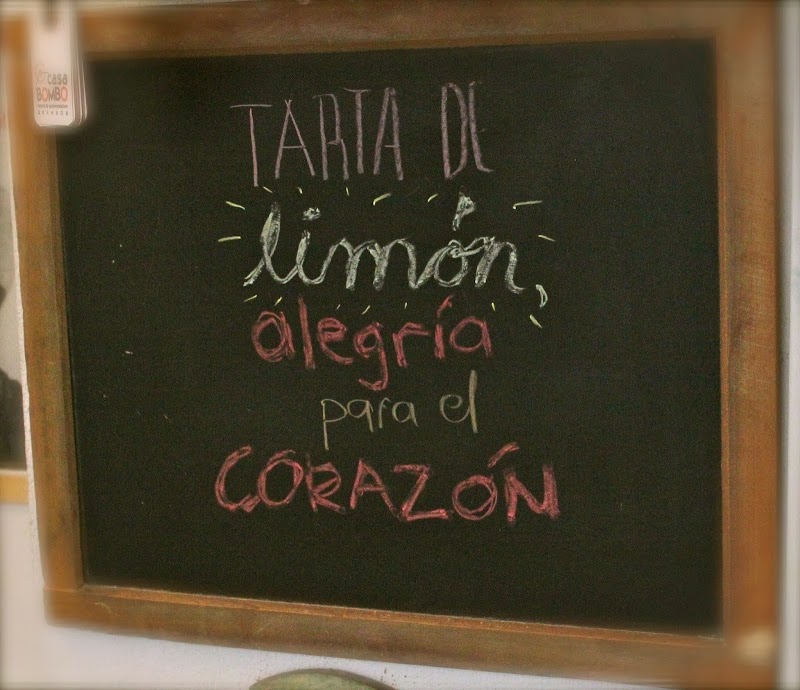 casa
BOMBO
TARTA DE
limón,
alegría
para el
CORAZÓN